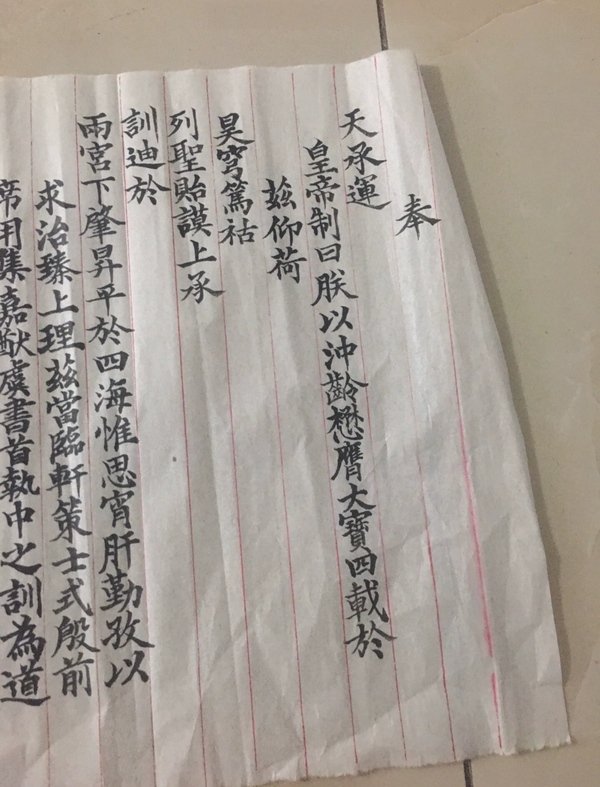 奉
天承運
皇帝制曰朕以沖齡懋膺大寶四載於
茲仰荷
昊穹篤祜
列聖貽謨上承
訓迪於
雨宮下肇昇平於四海惟思宵肝勤孜以
求治臻上理茲當臨軒策士式殷前
席用集嘉猷虞書首執中之訓為道